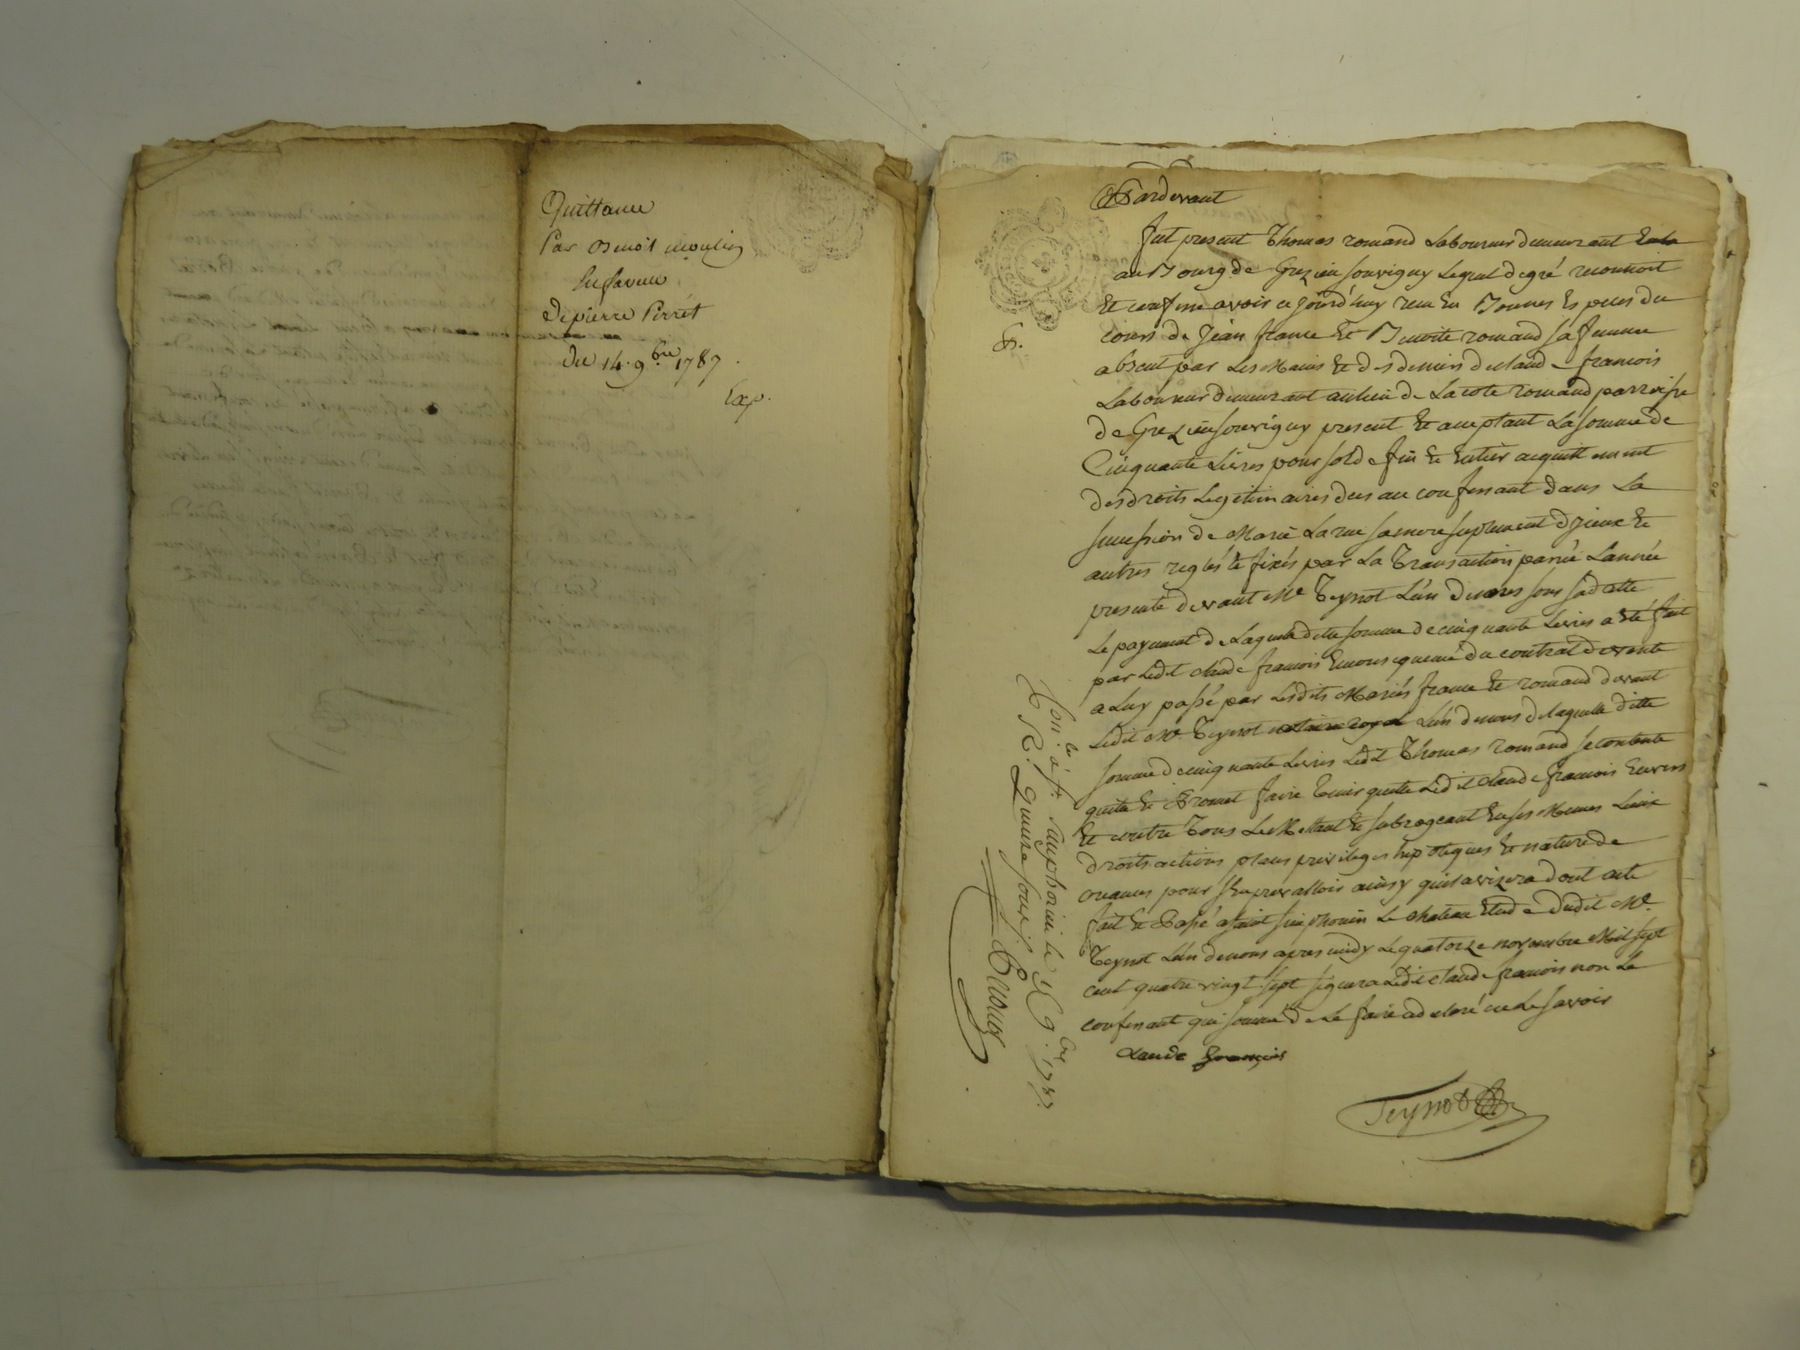 Quittance
Par Benoit moulin
En faveur
De pierre Perret
Du 14. 9.bre 1787.
Exp.
Pardevant
fut present Thomas romand Laboureur demeurant
au Bourg de Grezieu souvigny Lequel de gré reconnoit
et confesse avoir ce jourd'huy recu en Bonnes Especes du
cours de Jean france et Benoite romand sa femme
absent par Les Mains et des deniers de claude francois
Laboureur demeurant au lieu de La cote romand parroisse
de Grezieu souvigny present et acceptant La somme de
Cinquante Livres pour solde fin et entier acquittement
des droits Legitimaires dus au confessant dans La
succession de Marie Larue sa mere suplement d'iceux et
autres reglés et fixés par La Transaction passée L'année
presente devant Me Teynot L'un de nous sous sa datte
Le payement de Laquelle ditte somme de cinquante Livres a été fait
par Ledit claude francois En consequence du contrat de vente
a Luy passé par Lesdits Mariés france et romand devant
Ledit Me. Teynot L'un de nous de laquelle ditte
somme de cinquante Livres Ledit Thomas romand se contente
quitte et Promet faire tenir quitte Ledit claude francois Envers
et contre Tous Le Mettant et subrogeant En ses Memes Lieux
droits actions places privileges hipoteques et nature de
creances pour s'en prevalloir ainsy qu'il avizera dont acte
fait et Passé a saint simphorien Le chateau Etude dudit Me.
Teynot L'un de nous apres midy Le quatorze novembre Mil sept
cent quatre vingt sept signera Ledit claude francois non Le
confessant qui sommé de Le faire a declaré ne Le savoir
claude françois
Teynot
Con.lé à St. Simphorien le 9.bre 1787.
R. quinze sous